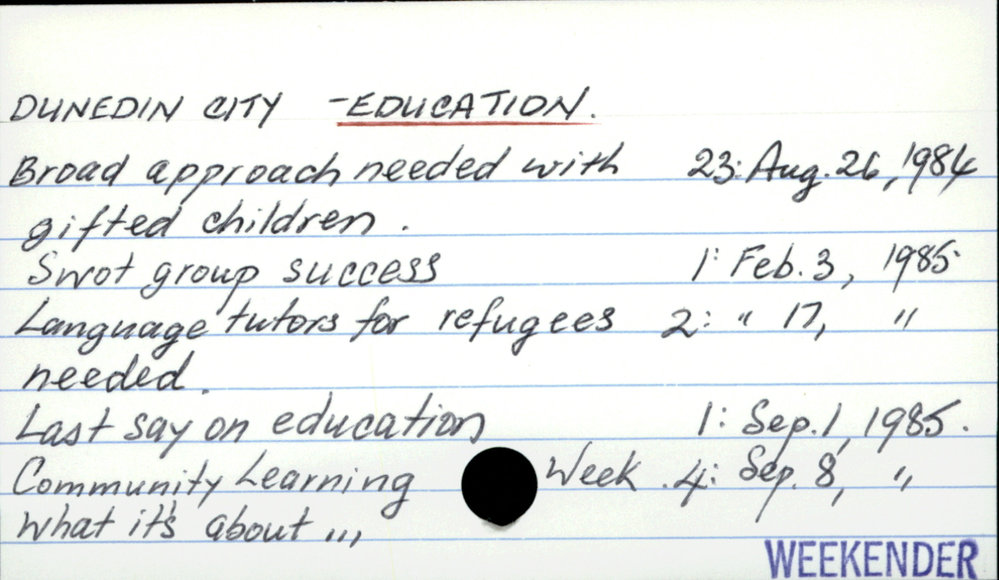 DUNEDIN CITY - EDUCATION.
Broad approach needed with 23: Aug. 26, 1984
gifted children.
Swot group success 1: Feb. 3, 1985.
Language tutors for refugees 2: " 17, "
needed.
Last say on education 1: Sep. 1, 1985.
Community Learning Week. 4: Sep. 8, "
What it's about ...
WEEKENDER